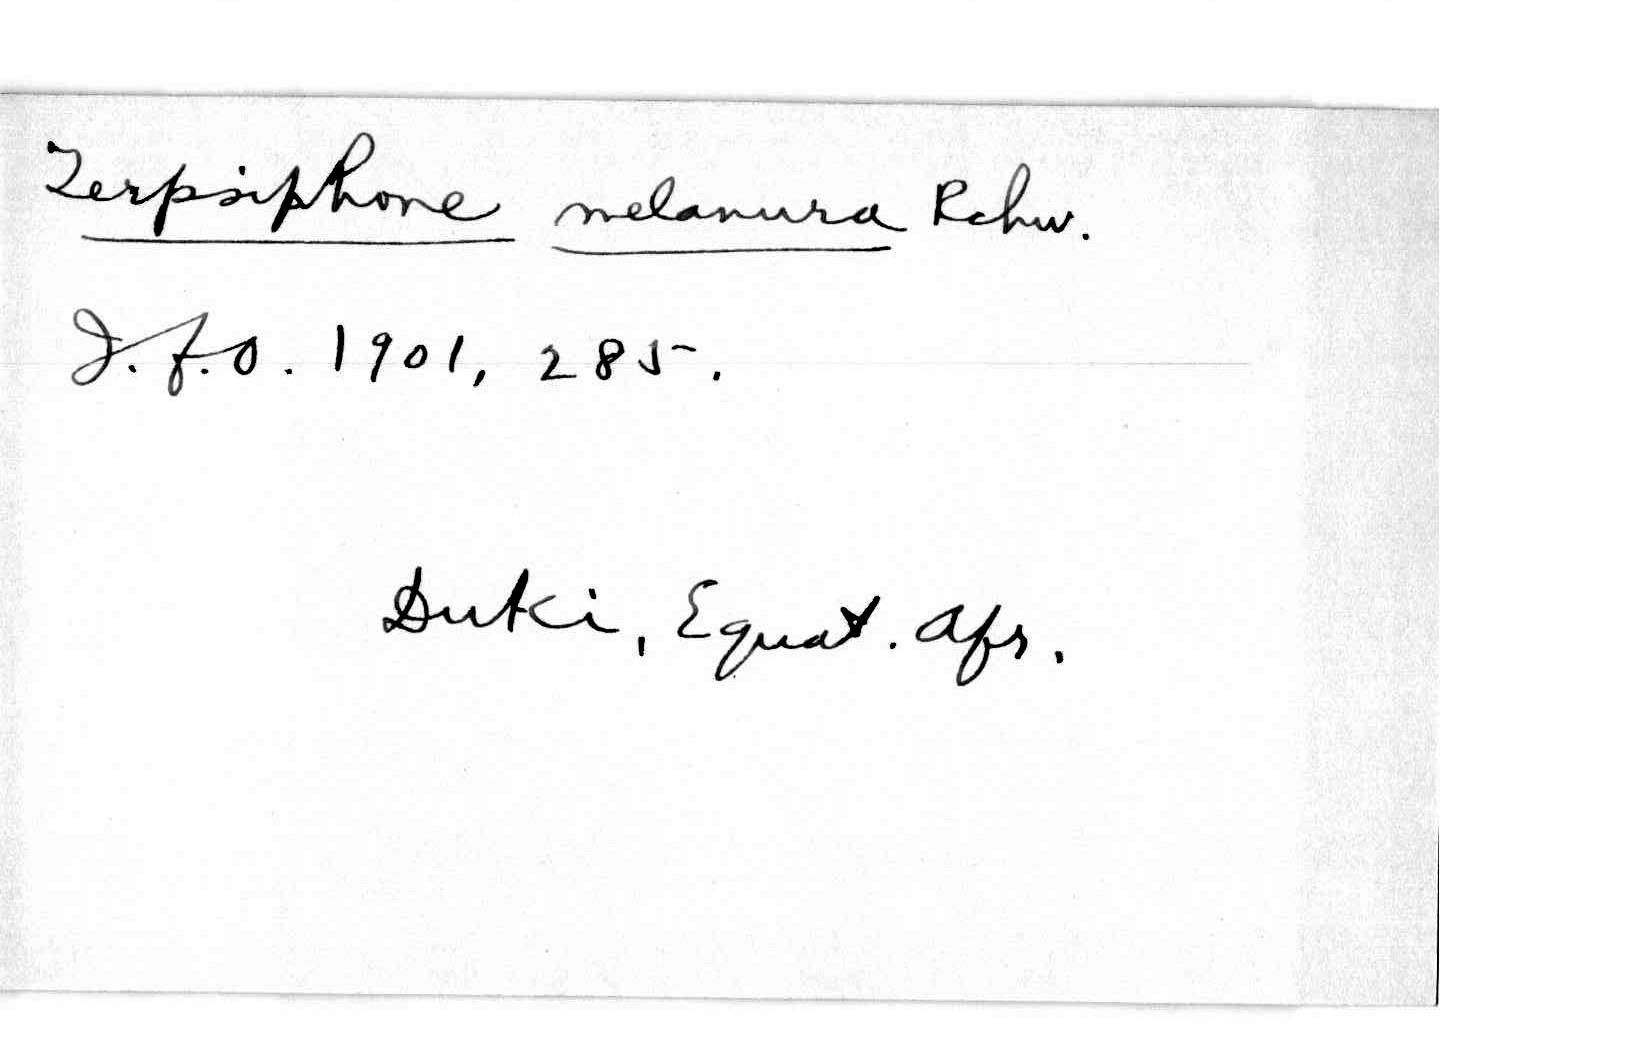 Terpsiphone melanura Rchw.
J.f.O. 1901, 285.
Duki, Equat. Afr.